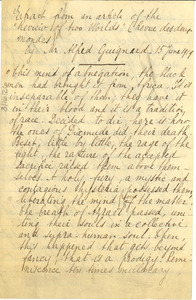 Extract from an article of the
"Review of two Worlds" (Revue des deux
mondes)
By Mr Alfred Guignard, 15 June 19
This mind of abnegation, the black
men had brought it from Africa. It is
inseparable of them, they have it
in their blood as it is a tradition
of race. Decided to die, here is how
the ones of Diomude did their death
beat, little by little, the rage of the
fight, the rapture of the accepted
sacrifice raised them above them
selves. A holy fury, a mystic and
contagious hysteria possessed them
liberating the mind of the matter.
The breath of Azrael passed, uni
ting their souls in a collective
and supra-human soul. Then,
this happened that gets beyond
fancy, that is a prodigy: Terme
ten times